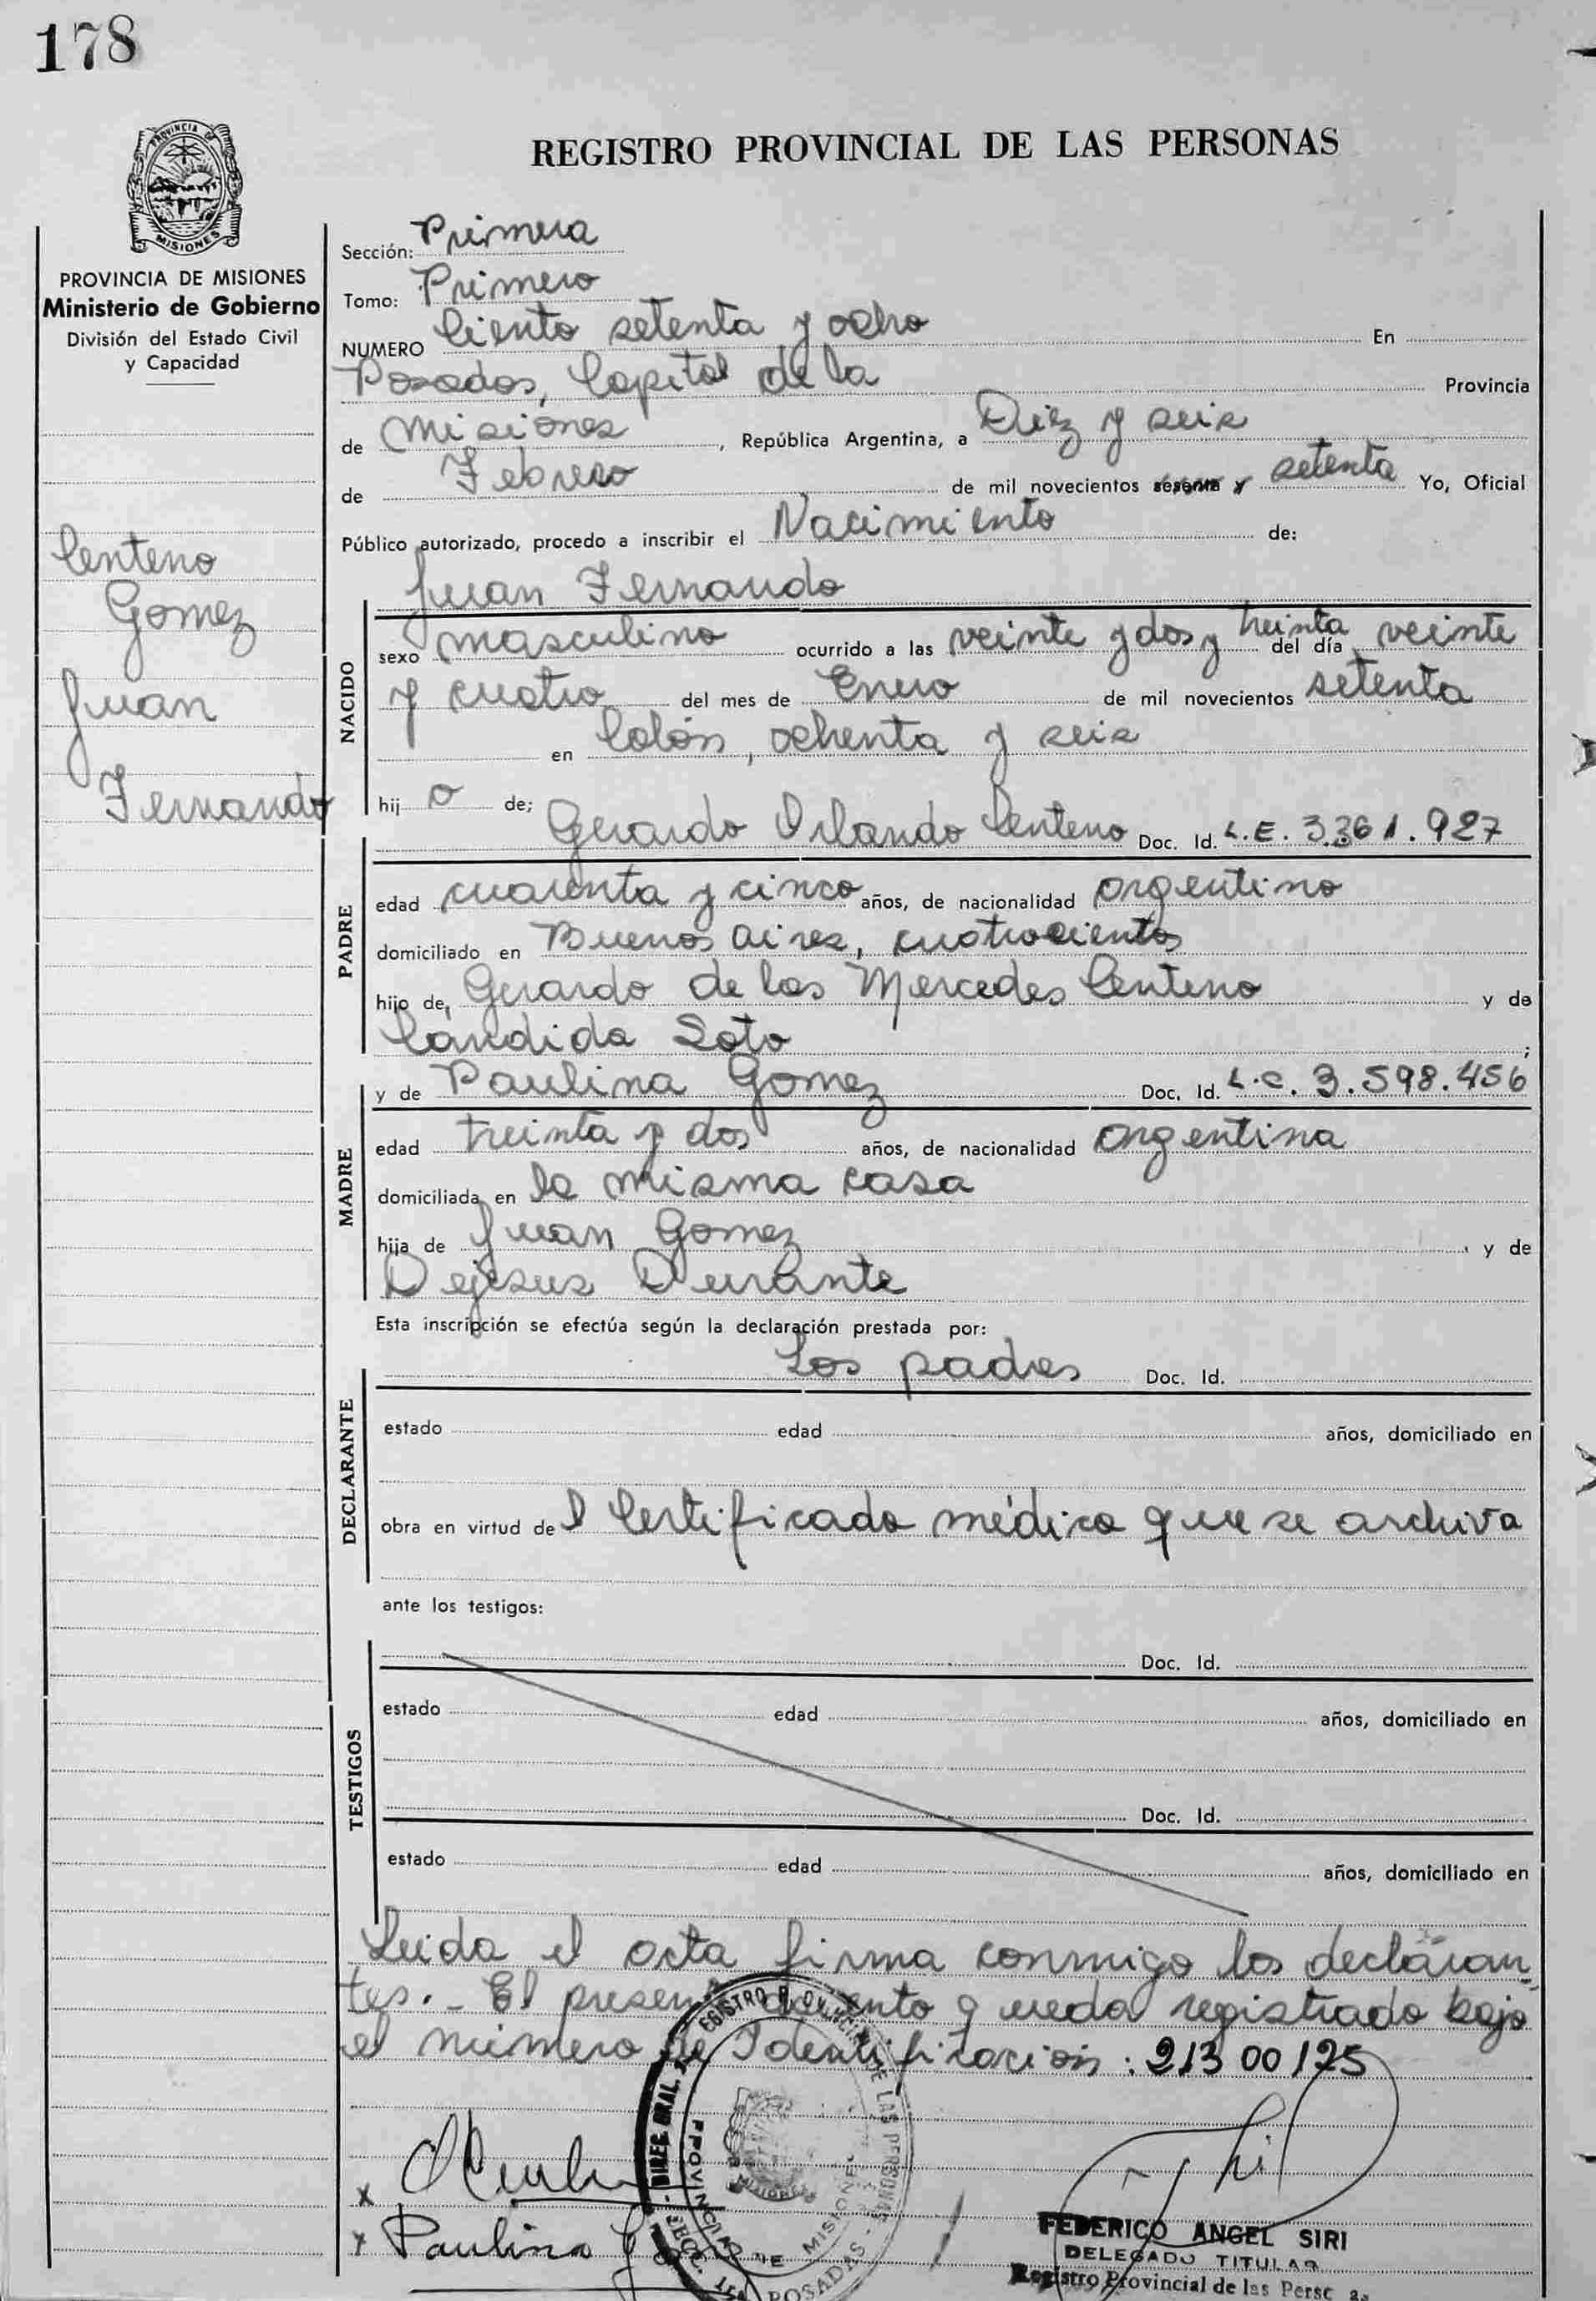 178
PROVINCIA DE
MISIONES
REGISTRO PROVINCIAL DE LAS PERSONAS
PROVINCIA DE MISIONES
Ministerio de Gobierno
División del Estado Civil
y Capacidad
Centeno
Gomez
Juan
Fernando
Sección: Primera
Tomo: Primero
NUMERO Ciento setenta y ocho En
Posadas, Capital de la Provincia
de Misiones, República Argentina, a Diez y seis
de Febrero de mil novecientos sesenta y setenta Yo, Oficial
Público autorizado, procedo a inscribir el Nacimiento de:
Juan Fernando
NACIDO
sexo masculino ocurrido a las veinte y dos y treinta del día veinte
y cuatro del mes de Enero de mil novecientos setenta
en Colón, ochenta y seis
hijo de; Gerardo Orlando Centeno Doc. Id. L.E. 3.361.927
PADRE
edad cuarenta y cinco años, de nacionalidad argentino
domiciliado en Buenos Aires, cuatrocientos
hijo de, Gerardo de las Mercedes Centeno y de
Cándida Soto ;
y de Paulina Gomez Doc. Id. L.C. 3.598.456
MADRE
edad treinta y dos años, de nacionalidad argentina
domiciliada en la misma casa
hija de Juan Gomez y de
Dejesus Durante
Esta inscripción se efectúa según la declaración prestada por:
Los padres Doc. Id.
DECLARANTE
estado edad años, domiciliado en
obra en virtud del Certificado médico que se archiva
ante los testigos:
TESTIGOS
Doc. Id.
estado edad años, domiciliado en
Doc. Id.
estado edad años, domiciliado en
Leida el acta firma conmigo los declaran-
tes.- El presente queda registrado bajo
el número de Identificación: 21300125
Paulina
DIREC. GRAL. REGISTRO PROVINCIAL DE LAS PERSONAS
PROVINCIA DE MISIONES
SECC. 1ª POSADAS
FEDERICO ANGEL SIRI
DELEGADO TITULAR
Registro Provincial de las Persc as